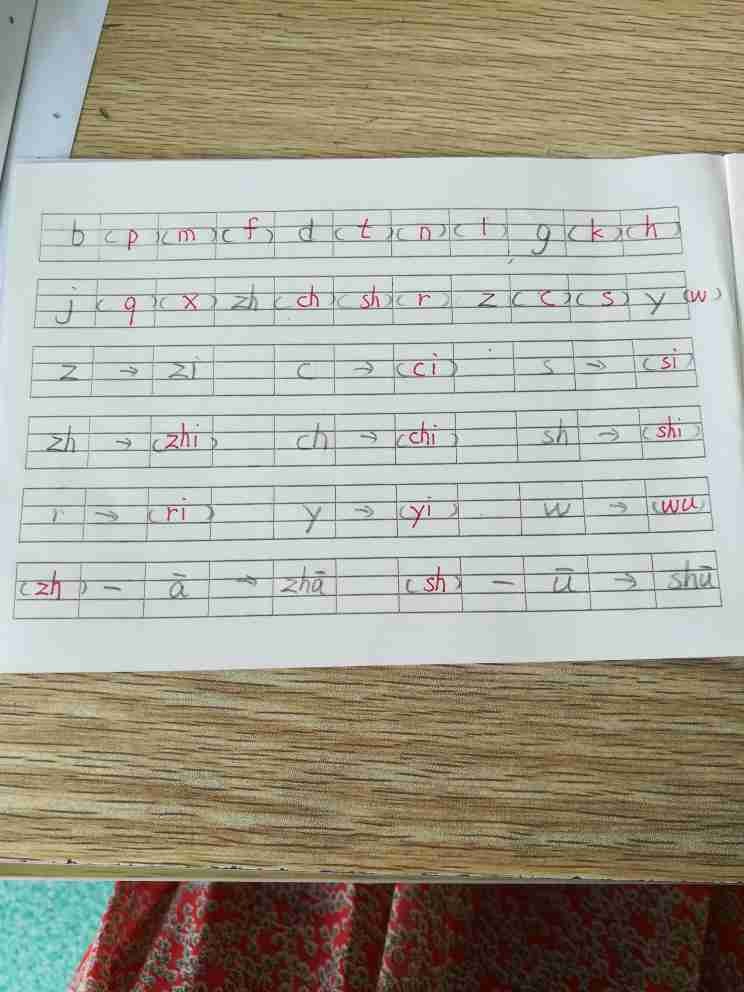 b (p) (m) (f) d (t) (n) (l) g (k) (h)
j (q) (x) zh (ch) (sh) (r) z (c) (s) y (w)
z → zi c → (ci) s → (si)
zh → (zhi) ch → (chi) sh → (shi)
r → (ri) y → (yi) w → (wu)
(zh) - ā → zhā (sh) - ū → shū